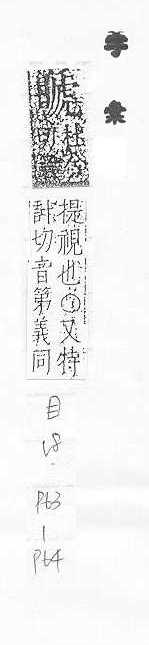 字彙
杜兮
切音
提視也○又特
計切音第義同
目
18.
P63
|
P64